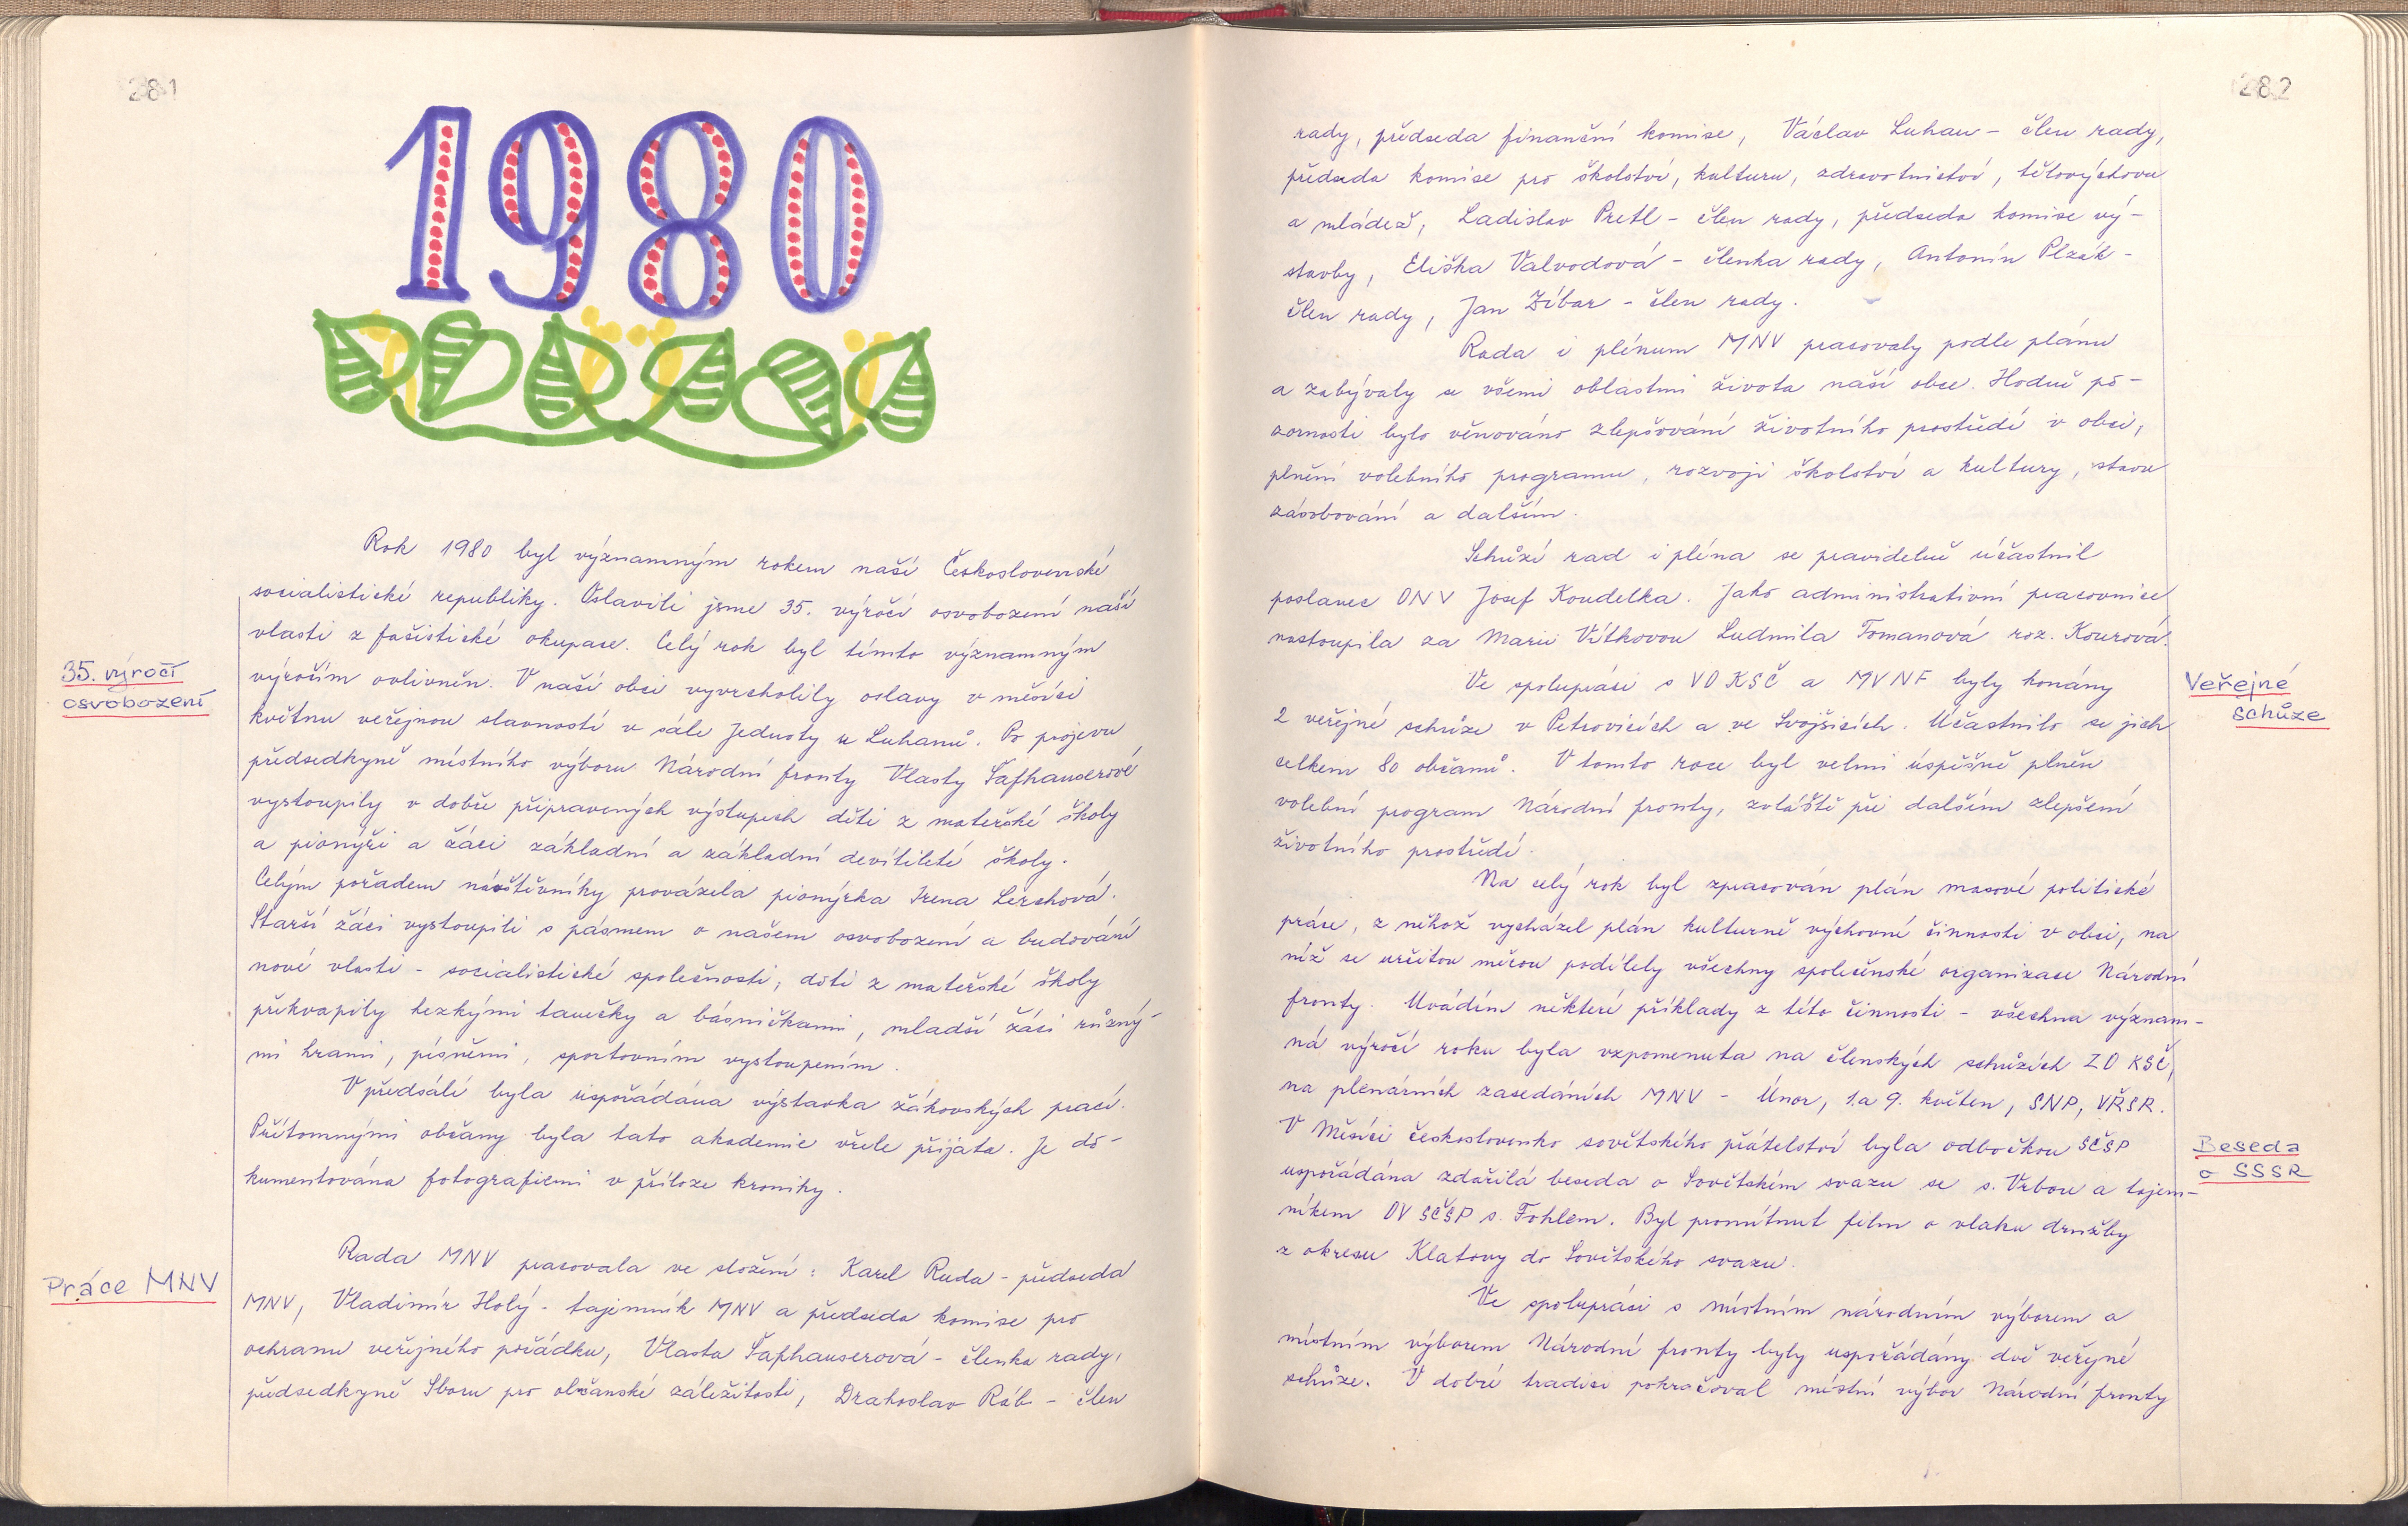 281
1980
Rok 1980 byl významným rokem naší Československé
socialistické republiky. Oslavili jsme 35. výročí osvobození naší
vlasti z fašistické okupace. Celý rok byl tímto významným
35. výročí
osvobození
výročím ovlivněn. V naší obci vyvrcholily oslavy v měsíci
květnu veřejnou slavností v sále Jednoty u Luhanů. Po projevu
předsedkyně místního výboru Národní fronty Vlasty Šafhauserové
vystoupily v dobře připravených výstupech děti z mateřské školy
a pionýři a žáci základní a základní devítileté školy.
Celým pořadem návštěvníky provázela pionýrka Irena Lerchová.
Starší žáci vystoupili s pásmem o našem osvobození a budování
nové vlasti - socialistické společnosti, děti z mateřské školy
překvapily hezkými tanečky a básničkami, mladší žáci různý-
mi hrami, písněmi, sportovním vystoupením.
V předsálí byla uspořádána výstavka žákovských prací.
Přítomnými občany byla tato akademie vřele přijata. Je do-
kumentována fotografiemi v příloze kroniky.
Práce MNV
Rada MNV pracovala ve složení: Karel Ruda - předseda
MNV, Vladimír Holý - tajemník MNV a předseda komise pro
ochranu veřejného pořádku, Vlasta Šafhauserová - členka rady,
předsedkyně Sboru pro občanské záležitosti, Drahoslav Ráb - člen
282
rady, předseda finanční komise, Václav Luhan - člen rady,
předseda komise pro školství, kulturu, zdravotnictví, tělovýchovu
a mládež, Ladislav Pretl - člen rady, předseda komise vý-
stavby, Eliška Valvodová - členka rady, Antonín Plzák -
člen rady, Jan Zíbar - člen rady.
Rada i plénum MNV pracovaly podle plánu
a zabývaly se všemi oblastmi života naší obce. Hodně po-
zornosti bylo věnováno zlepšování životního prostředí v obci,
plnění volebního programu, rozvoji školství a kultury, stavu
zásobování a dalším.
Schůzí rad i pléna se pravidelně účastnil
poslanec ONV Josef Koudelka. Jako administrativní pracovnice
nastoupila za Marii Vítkovou Ludmila Tomanová roz. Kourová.
Veřejné
schůze
Ve spolupráci s VO KSČ a MVNF byly konány
2 veřejné schůze v Petrovicích a ve Svojšicích. Účastnilo se jich
celkem 80 občanů. V tomto roce byl velmi úspěšně plněn
volební program Národní fronty, zvláště při dalším zlepšení
životního prostředí.
Na celý rok byl zpracován plán masově politické
práce, z něhož vycházel plán kulturně výchovné činnosti v obci, na
níž se určitou měrou podílely všechny společenské organizace Národní
fronty. Uvádím některé příklady z této činnosti - všechna význam-
ná výročí roku byla vzpomenuta na členských schůzích ZO KSČ,
na plenárních zasedáních MNV - Únor, 1. a 9. květen, SNP, VŘSR.
Beseda
o SSSR
V Měsíci československo sovětského přátelství byla odbočkou SČSP
uspořádána zdařilá beseda o Sovětském svazu se s. Vrbou a tajem-
níkem OV SČSP s. Fohlem. Byl promítnut film o vlaku družby
z okresu Klatovy do Sovětského svazu.
Ve spolupráci s místním národním výborem a
místním výborem Národní fronty byly uspořádány dvě veřejné
schůze. V dobré tradici pokračoval místní výbor Národní fronty